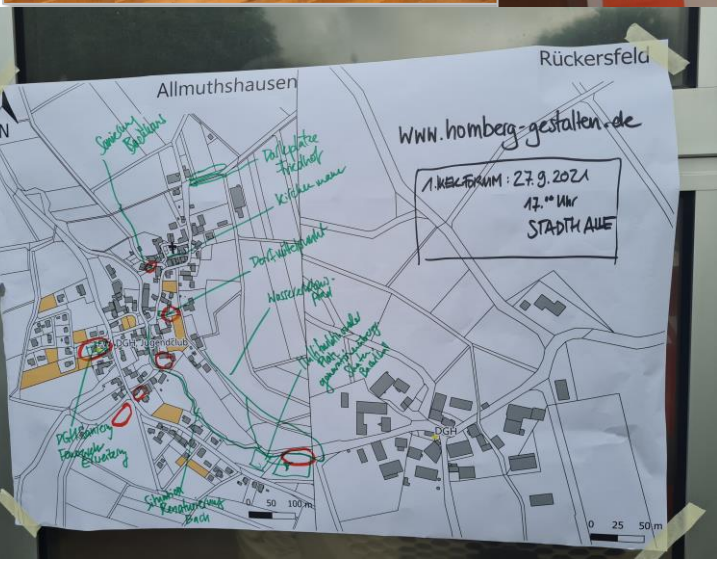 Allmuthshausen
Rückersfeld
N
www.homberg-gestalten.de
1. KECFORUM: 27.9.2021
17.00 Uhr
STADTHALLE
Sanierung
Backhaus
Parkplätze
Friedhof
Kirchenmauer
Dorfmittelpunkt
Wassererlebnis-
pfad
Platz
DGH, Jugendclub
DGH Sanierung
Feuerwehr
Erweiterung
Renaturierung
Bach
DGH
0 50 100 m
0 25 50 m